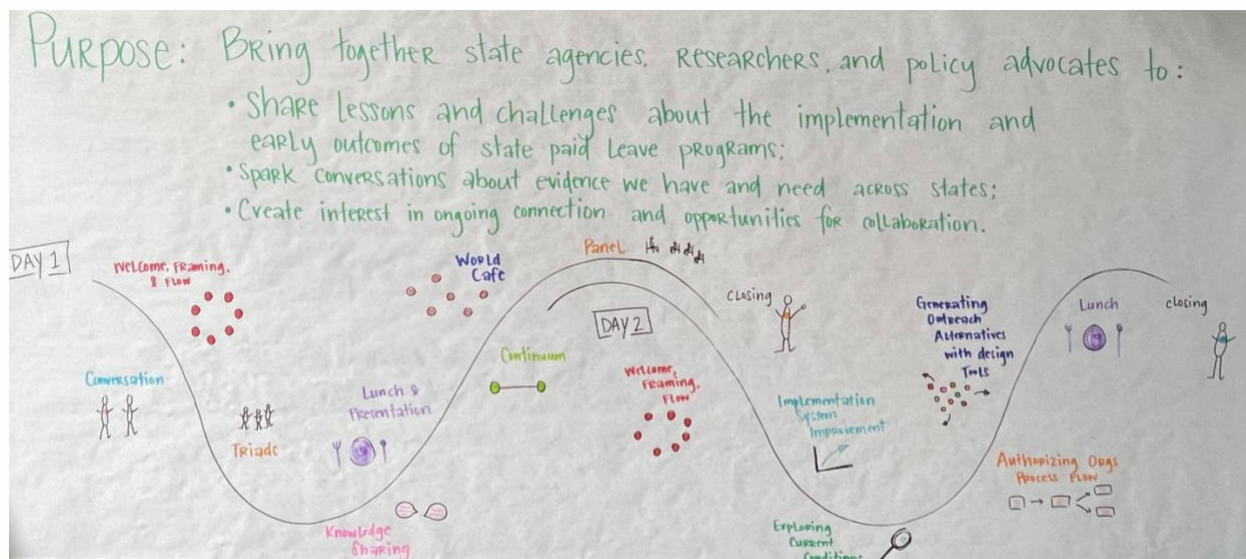 Purpose: Bring together state agencies, researchers, and policy advocates to:
• Share lessons and challenges about the implementation and
early outcomes of state paid leave programs;
• Spark conversations about evidence we have and need across states;
• Create interest in ongoing connection and opportunities for collaboration.
DAY 1
Welcome, Framing,
& Flow
Conversation
Triads
Lunch &
Presentation
Knowledge
Sharing
World
Cafe
Continuum
Panel
closing
DAY 2
Welcome,
Framing,
Flow
Implementation
System
Improvement
Exploring
Current
Conditions
Generating
Outreach
Alternatives
with design
Tools
Authorizing Orgs
Process Flow
Lunch
closing